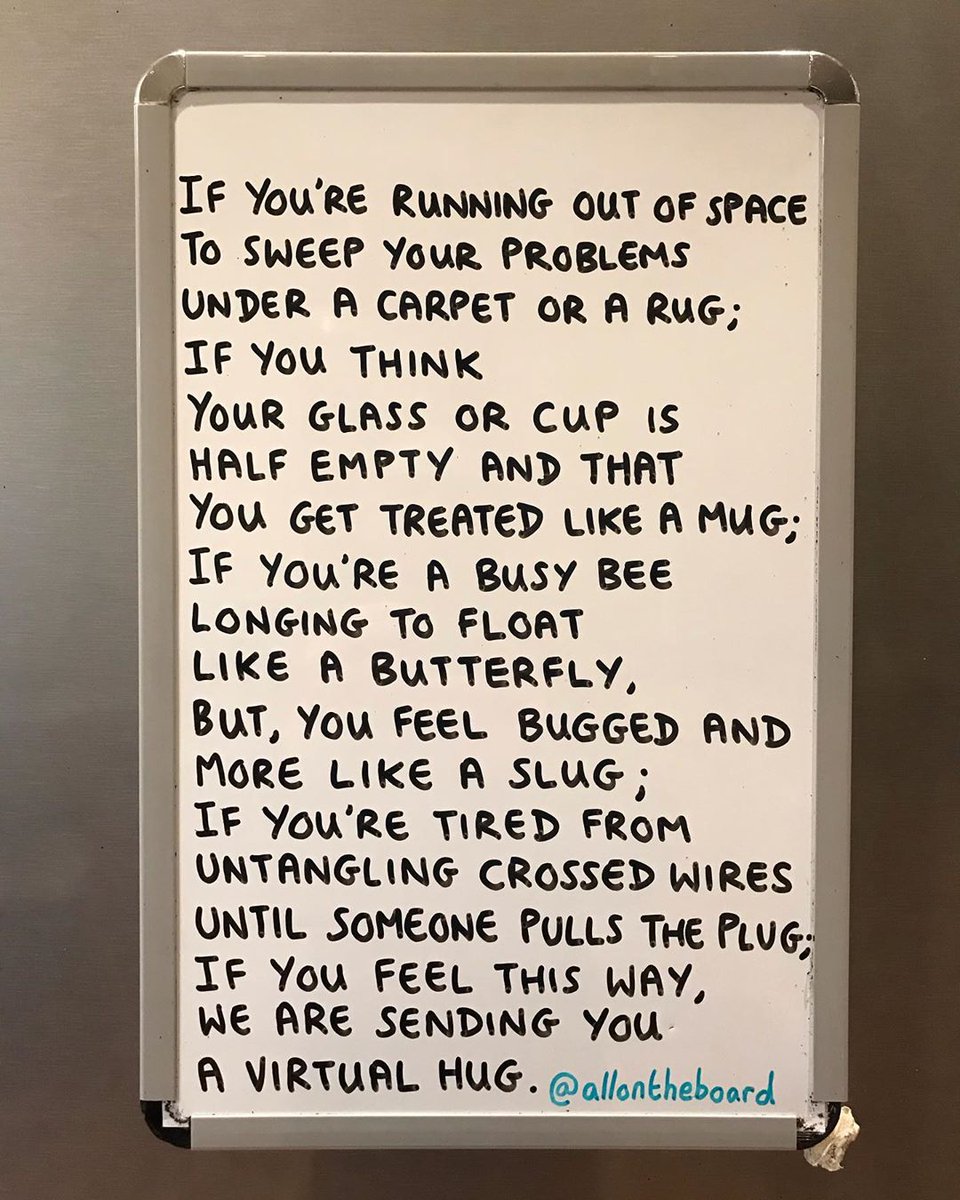 IF YOU'RE RUNNING OUT OF SPACE
TO SWEEP YOUR PROBLEMS
UNDER A CARPET OR A RUG;
IF YOU THINK
YOUR GLASS OR CUP IS
HALF EMPTY AND THAT
YOU GET TREATED LIKE A MUG;
IF YOU'RE A BUSY BEE
LONGING TO FLOAT
LIKE A BUTTERFLY,
BUT, YOU FEEL BUGGED AND
MORE LIKE A SLUG;
IF YOU'RE TIRED FROM
UNTANGLING CROSSED WIRES
UNTIL SOMEONE PULLS THE PLUG;
IF YOU FEEL THIS WAY,
WE ARE SENDING YOU
A VIRTUAL HUG. @allontheboard